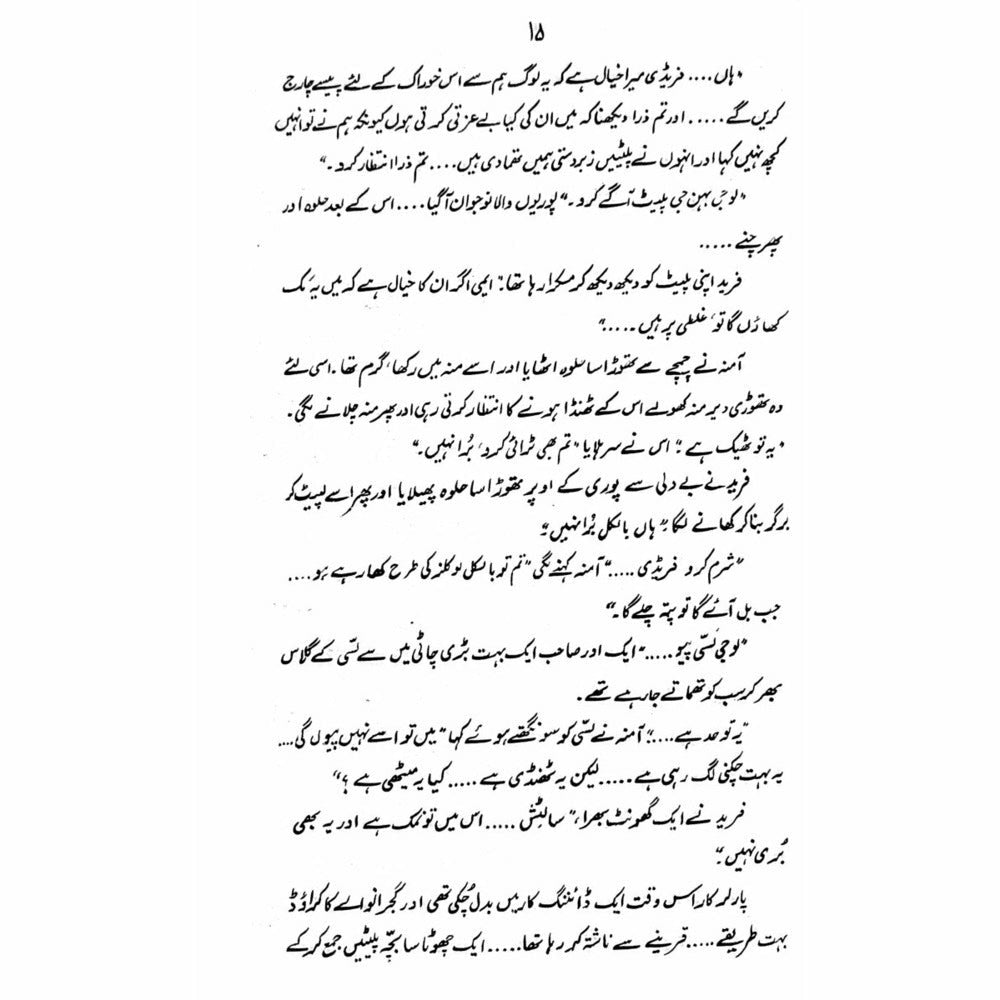 ۱۵
"ہاں .... فریڈی میرا خیال ہے کہ یہ لوگ ہم سے اس خوراک کے لئے پیسے چارج
کریں گے ..... اور تم ذرا دیکھنا کہ میں ان کی کیا بے عزتی کرتی ہوں کیونکہ ہم نے تو انہیں
کچھ نہیں کہا اور انہوں نے پلیٹیں زبردستی ہمیں تھما دی ہیں .... تم ذرا انتظار کرو۔"
"لو جی بہن جی پلیٹ آگے کرو۔" پوریوں والا نوجوان آ گیا .... اس کے بعد حلوہ اور
پھر چنے .....
فرید اپنی پلیٹ کو دیکھ دیکھ کر مسکرا رہا تھا۔" ایمی اگر ان کا خیال ہے کہ میں یہ مک
کھاؤں گا تو، غلطی پر ہیں ....."
آمنہ نے چمچے سے تھوڑا سا حلوہ اٹھایا اور اسے منہ میں رکھا، گرم تھا۔ اسی لئے
وہ تھوڑی دیر منہ کھولے اس کے ٹھنڈا ہونے کا انتظار کرتی رہی اور پھر منہ چلانے لگی۔
"یہ تو ٹھیک ہے۔" اس نے سر ہلایا "تم بھی ٹرائی کرو، بُرا نہیں۔"
فرید نے بے دلی سے پوری کے اوپر تھوڑا سا حلوہ پھیلایا اور پھر اسے لپیٹ کر
برگر بنا کر کھانے لگا۔" ہاں بالکل بُرا نہیں۔"
"شرم کرو فریڈی ....." آمنہ کہنے لگی "تم تو بالکل لوکلز کی طرح کھا رہے ہو ....
جب بل آئے گا تو پتہ چلے گا۔"
"لو جی لسّی پیو ....." ایک اور صاحب ایک بہت بڑی چاٹی میں سے لسّی کے گلاس
بھر کر سب کو تھماتے جا رہے تھے۔
"یہ تو حد ہے ...." آمنہ نے لسّی کو سونگھتے ہوئے کہا "میں تو اسے نہیں پیوں گی ....
یہ بہت چکنی لگ رہی ہے ..... لیکن یہ ٹھنڈی ہے ..... کیا یہ میٹھی ہے؟"
فرید نے ایک گھونٹ بھرا، "سالٹش ..... اس میں تو نمک ہے اور یہ بھی
بُری نہیں۔"
پارلر کار اس وقت ایک ڈائننگ کار میں بدل چُکی تھی اور گجرانوالے کا کراؤڈ
بہت طریقے ..... قرینے سے ناشتہ کر رہا تھا ..... ایک چھوٹا سا بچّہ پلیٹیں جمع کر کے